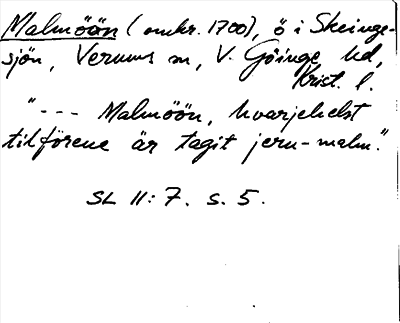 Malmöön (omkr. 1700), ö i Skeinge-
sjön, Verums sn, V. Göinge hd,
Krist. l.
"--- Malmöön, hvarjehelst
tilförene är tagit jern-malm."
SL II:7. s. 5.